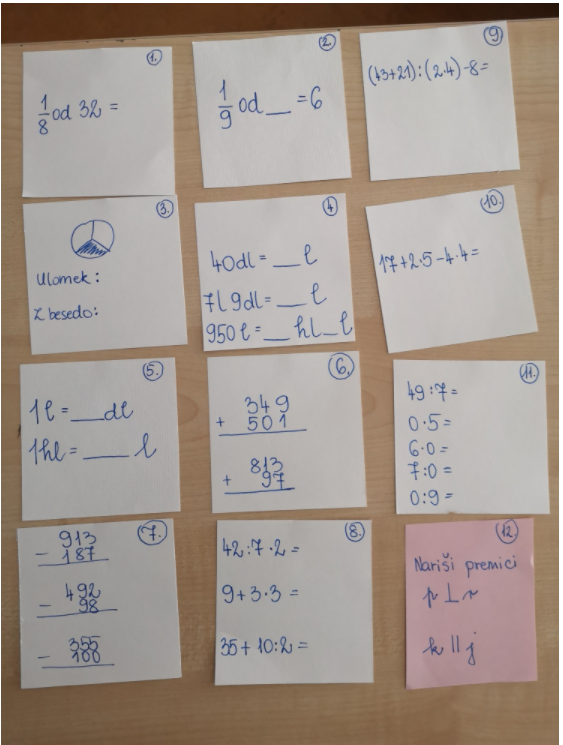 1.
1/8 od 32 =
2.
1/9 od __ = 6
9
(43+21):(2·4)-8=
3.
Ulomek:
Z besedo:
4
40dl = __ l
7l 9dl = __ l
950 l = __ hl __ l
10.
17+2·5-4·4=
5.
1l = __ dl
1hl = __ l
6.
349
+ 501
813
+ 97
11.
49:7=
0·5=
6·0=
7:0=
0:9=
7.
913
- 187
492
- 98
355
- 100
8.
42:7·2=
9+3·3=
35+10:2=
12.
Nariši premici
p ⊥ r
k || j